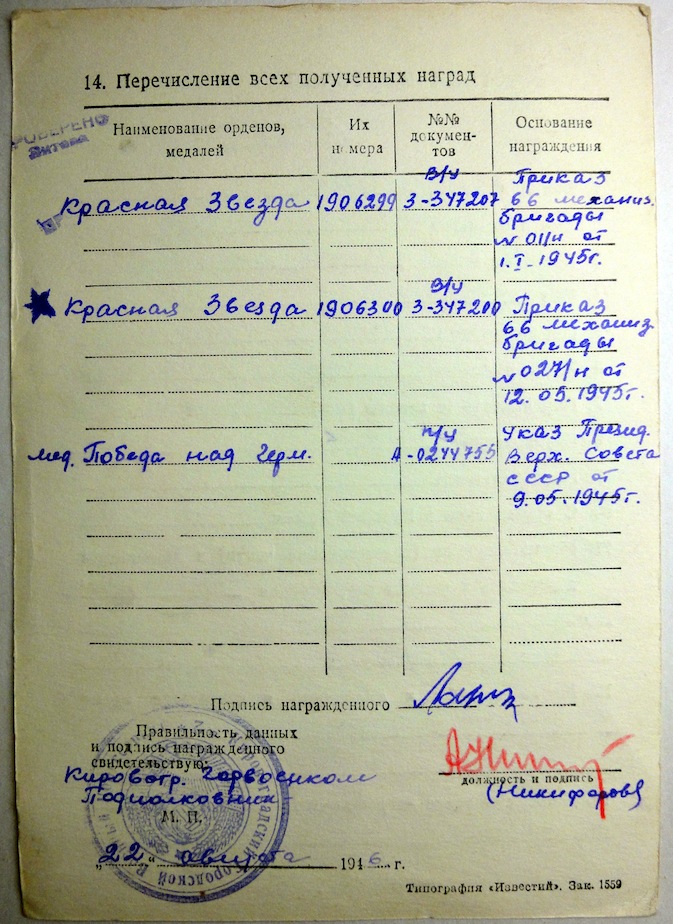 14. Перечисление всех полученных наград
Наименование орденов, медалей
Их номера
№№ документов
Основание награждения
Красная Звезда 1906299 В/у З-347207 Приказ
66 механиз.
бригады
№ 011/н от
1.I-1945г.
Красная Звезда 1906300 В/у З-347200 Приказ
66 механиз.
бригады
№ 027/н от
12.05.1945г.
мед. Победа над Герм. п/у А-0244755 Указ Презид.
Верх. Совета
СССР от
9.05.1945г.
Подпись награжденного
Правильность данных
и подпись награжденного
свидетельствую:
Кировогр. Горвоенком
Подполковник
М. П.
должность и подпись
(Никифоров)
„22“ августа 1946 г.
Типография «Известий». Зак. 1559